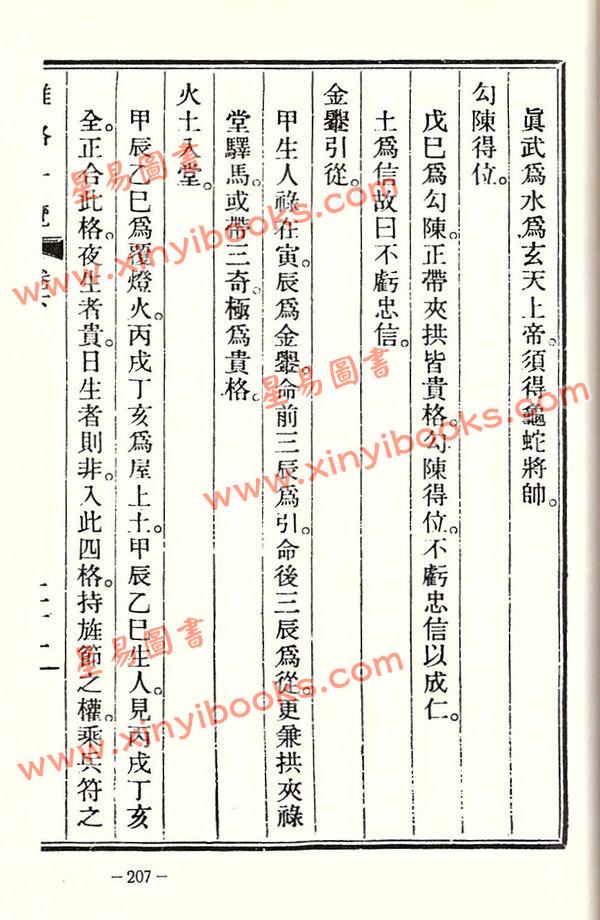 眞武爲水爲玄天上帝。須得龜蛇將帥。
勾陳得位。
戊巳爲勾陳。正帶夾拱皆貴格。勾陳得位。不虧忠信以成仁。
土爲信故曰不虧忠信。
金轝引從。
甲生人祿在寅。辰爲金轝。命前三辰爲引。命後三辰爲從。更兼拱夾祿
堂驛馬。或帶三奇。極爲貴格。
火土入堂。
甲辰乙巳爲覆燈火。丙戌丁亥爲屋上土。甲辰乙巳生人。見丙戌丁亥
全。正合此格。夜生者貴。日生者則非。入此四格。持旌節之權。乘兵符之
一覽
卷六
二十二
-207-
星易圖書
www.xinyibooks.com
星易圖書
www.xinyibooks.com
星易圖書
www.xinyibooks.com